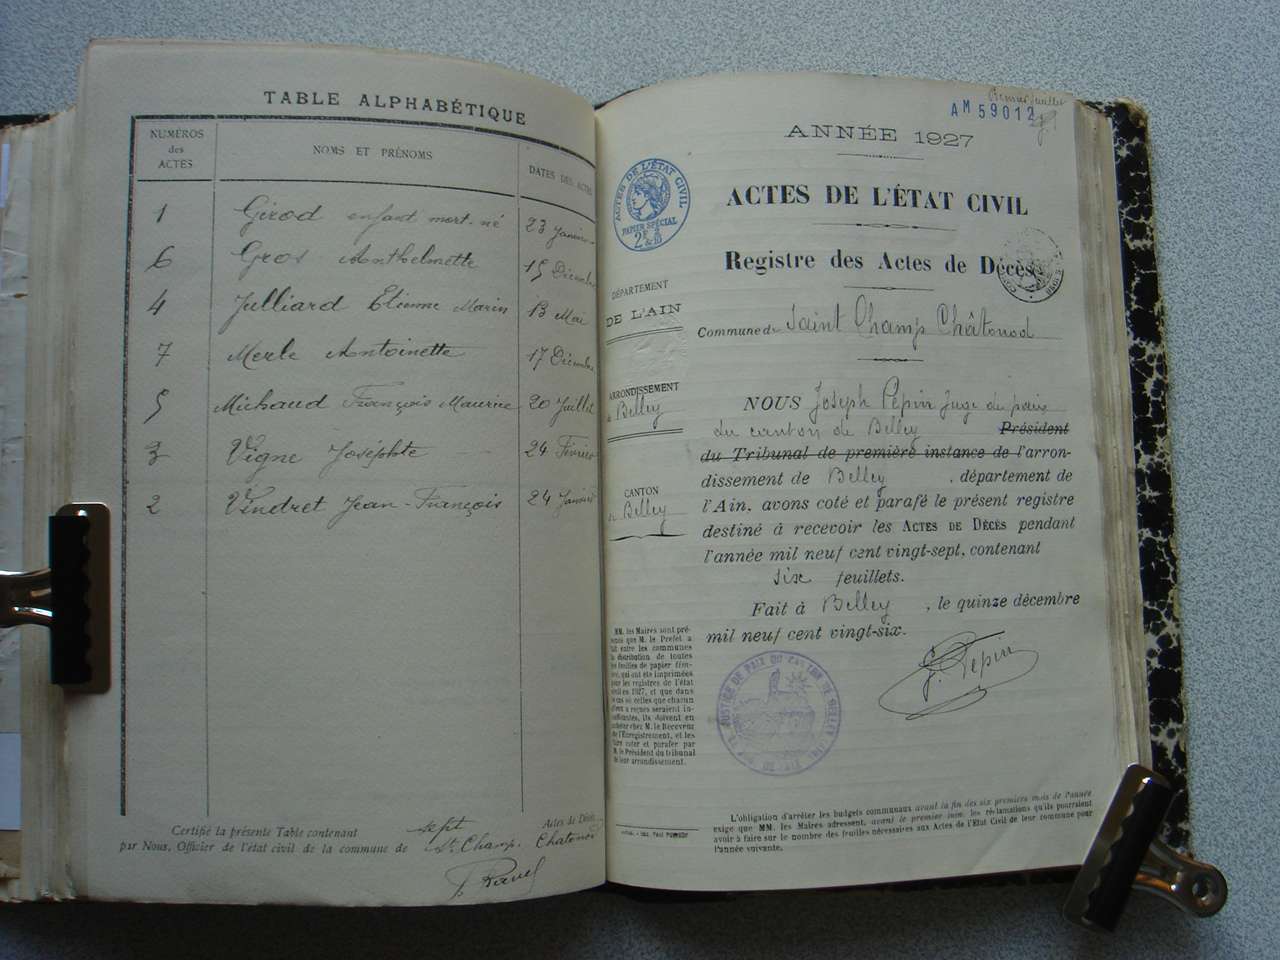 TABLE ALPHABÉTIQUE
NUMÉROS des ACTES
NOMS ET PRÉNOMS
DATES DES ACTES
1 Girod enfant mort-né 23 Janvier
6 Gros Anthelmette 15 Décembre
4 Julliard Etienne Marin 13 Mai
7 Merle Antoinette 17 Décembre
5 Michaud François Maurice 20 Juillet
3 Vigne Joséphte 24 Février
2 Vindret Jean-François 24 Janvier
Certifié la présente Table contenant sept Actes de Décès
par Nous, Officier de l'état civil de la commune de St Champ. Chatonod
Premier feuillet
AM 59012
ANNÉE 1927
ACTES DE L'ÉTAT CIVIL
PAPIER SPÉCIAL
ACTES DE L'ÉTAT CIVIL
Registre des Actes de Décès
DÉPARTEMENT
DE L'AIN
Commune de Saint Champ Châtonod
ARRONDISSEMENT
de Belley
CANTON
de Belley
NOUS Joseph Pépin Juge de paix
du canton de Belley Président
du Tribunal de première instance de l'arron-
dissement de Belley, département de
l'Ain, avons coté et parafé le présent registre
destiné à recevoir les ACTES DE DÉCÈS pendant
l'année mil neuf cent vingt-sept, contenant
six feuillets.
Fait à Belley, le quinze décembre
mil neuf cent vingt-six.
J. Pépin
JUSTICE DE PAIX DU CANTON DE BELLEY (AIN)
MM. les Maires sont pré-
venus que M. le Préfet a
fait entre les communes
la distribution de toutes
les feuilles de papier tim-
bré, qui ont été imprimées
pour les registres de l'état
civil en 1927, et que dans
le cas où celles que chacun
d'eux a reçues seraient in-
suffisantes, ils doivent en
acheter chez M. le Receveur
de l'Enregistrement, et les
faire coter et parafer par
M. le Président du tribunal
de leur arrondissement.
L'obligation d'arrêter les budgets communaux avant la fin des six premiers mois de l'année
exige que MM. les Maires adressent, avant le premier juin, les réclamations qu'ils pourraient
avoir à faire sur le nombre des feuilles nécessaires aux Actes de l'État Civil de leur commune pour
l'année suivante.